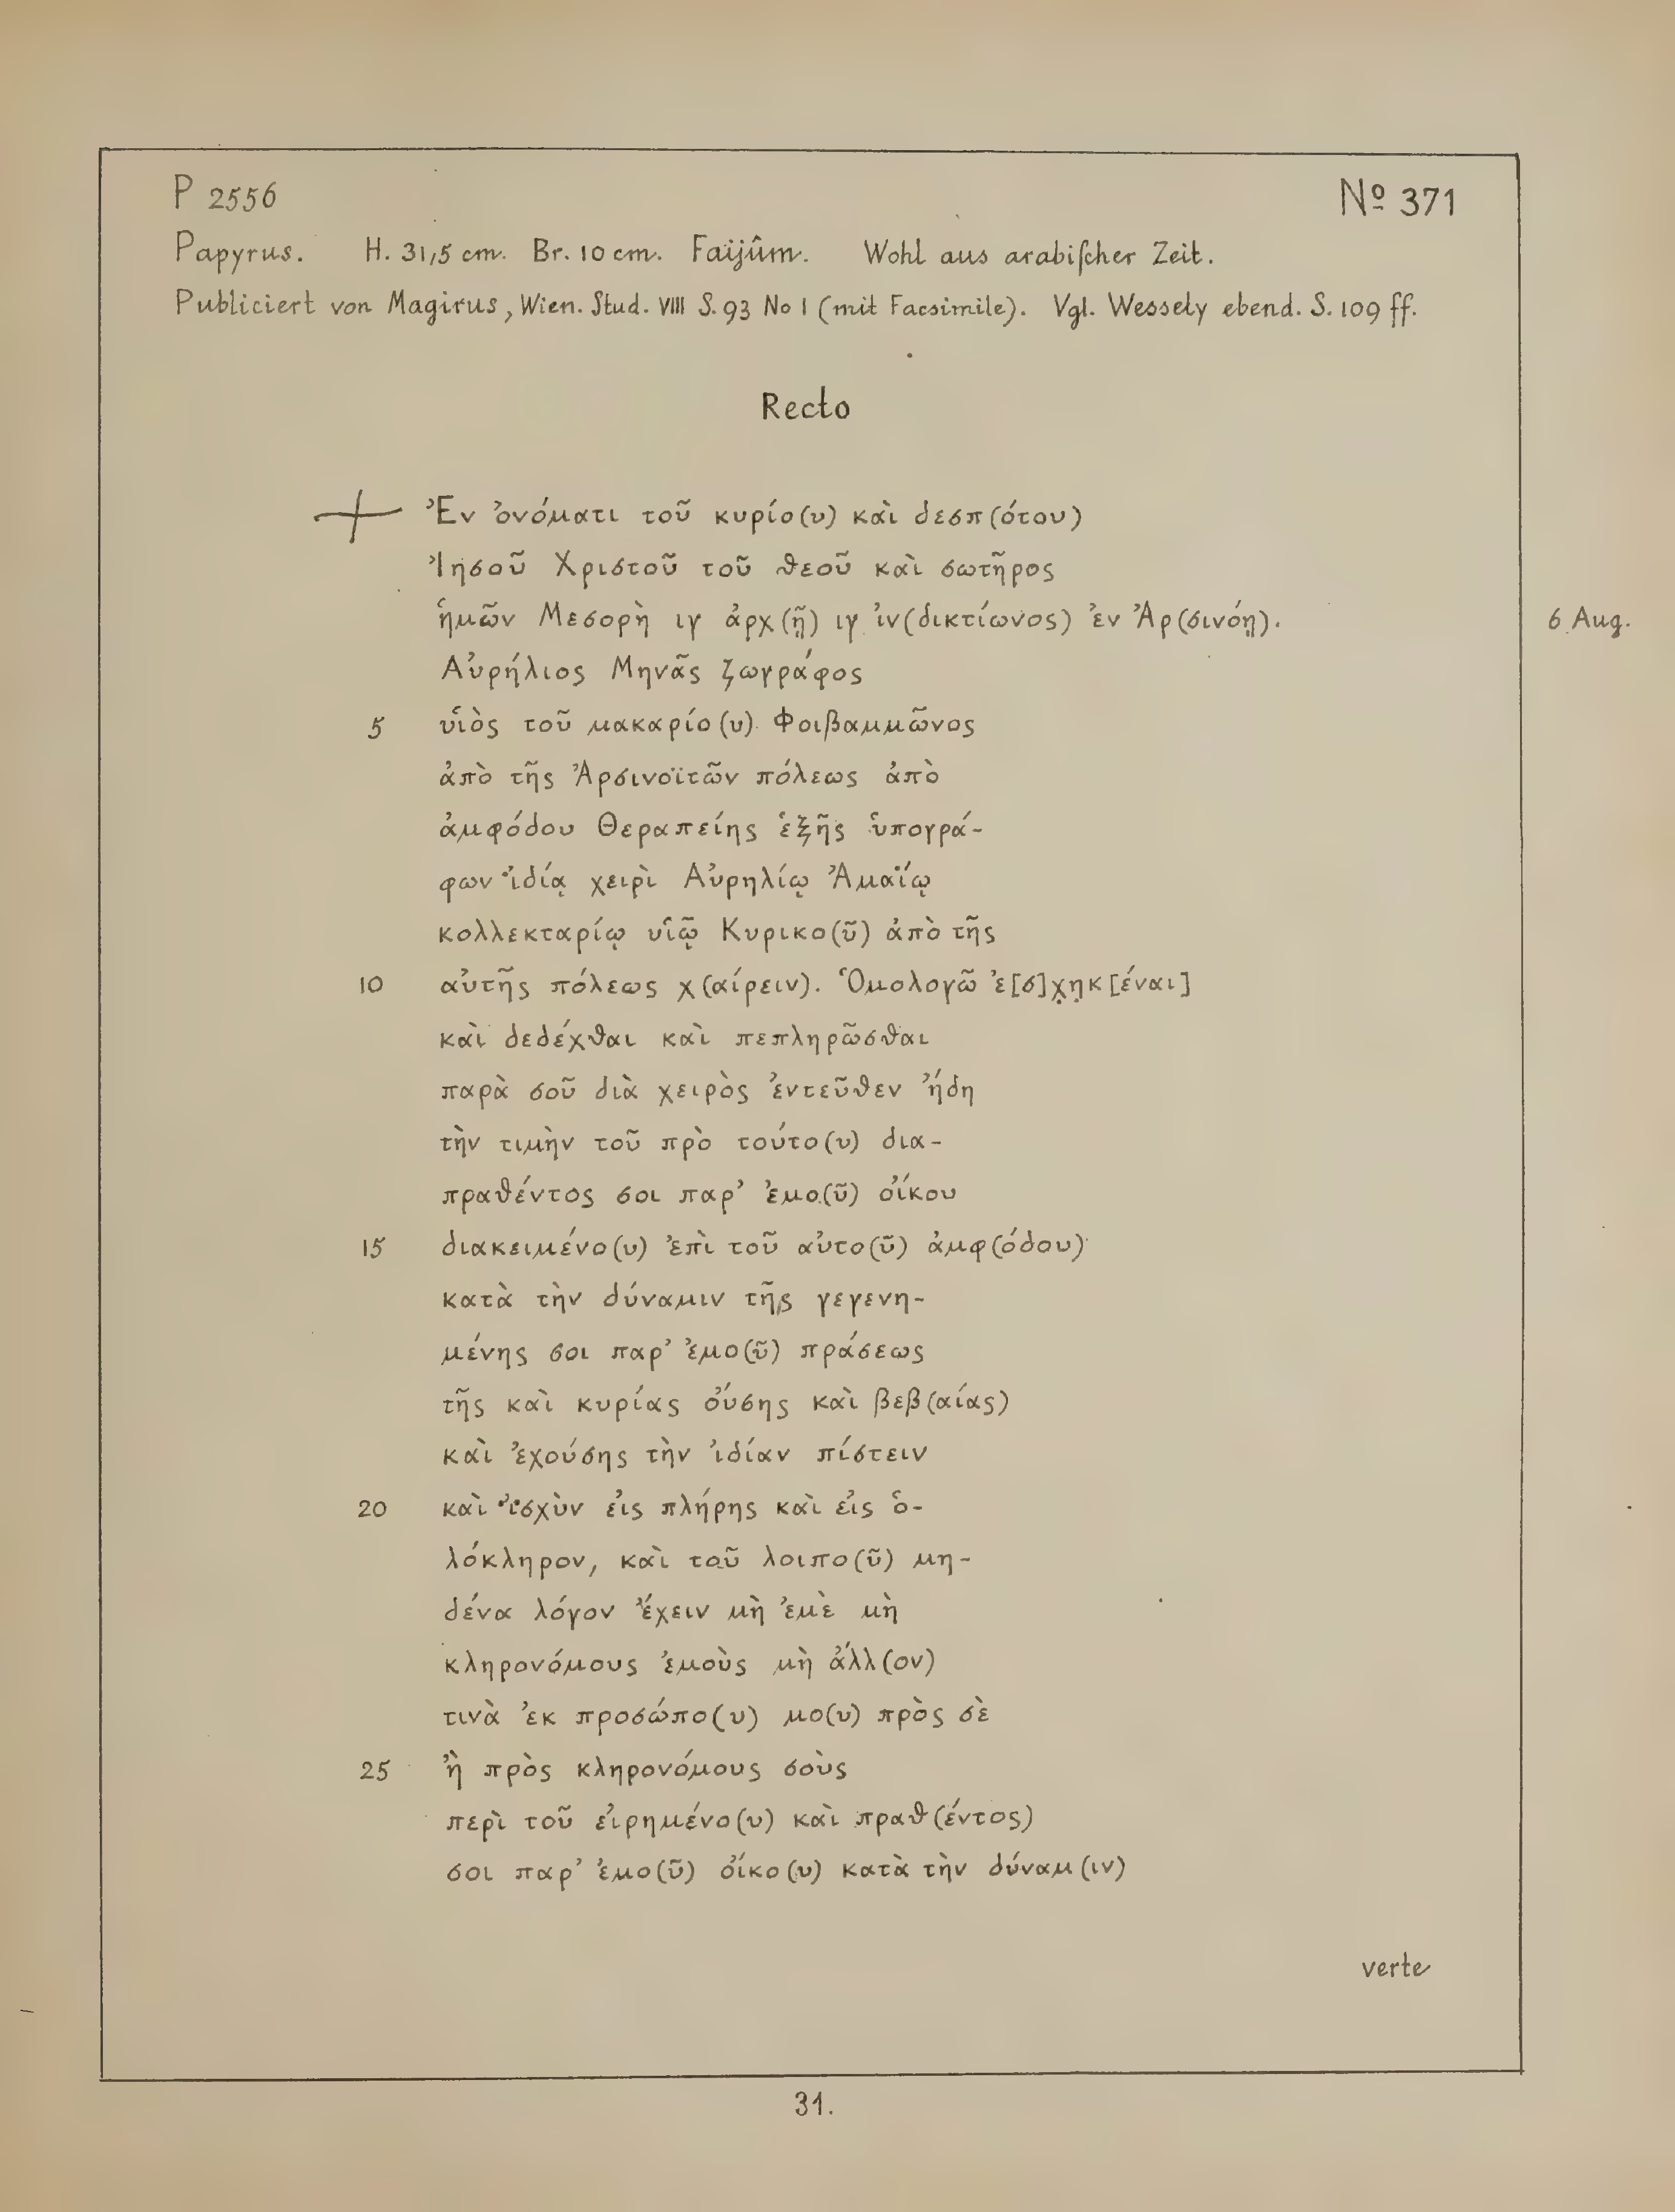 P 2556
Nº 371
Papyrus. H. 31,5 cm. Br. 10 cm. Faijûm. Wohl aus arabiſcher Zeit.
Publiciert von Magirus, Wien. Stud. VIII S. 93 No 1 (mit Facsimile). Vgl. Wessely ebend. S. 109 ff.
Recto
Ἐν ὀνόματι τοῦ κυρίο(υ) καὶ δεσπ(ότου)
Ἰησοῦ Χριστοῦ τοῦ θεοῦ καὶ σωτῆρος
ἡμῶν Μεσορὴ ιγ ἀρχ(ῇ) ιγ ἰν(δικτίωνος) ἐν Ἀρ(σινόῃ). 6 Aug.
Αὐρήλιος Μηνᾶς ζωγράφος
5 υἱὸς τοῦ μακαρίο(υ) Φοιβαμμῶνος
ἀπὸ τῆς Ἀρσινοϊτῶν πόλεως ἀπὸ
ἀμφόδου Θεραπείης ἑξῆς ὑπογρά-
φων ἰδίᾳ χειρὶ Αὐρηλίῳ Ἀμαΐῳ
κολλεκταρίῳ υἱῷ Κυρικο(ῦ) ἀπὸ τῆς
10 αὐτῆς πόλεως χ(αίρειν). Ὁμολογῶ ἐ[σ]χ̣η̣κ[έναι]
καὶ δεδέχθαι καὶ πεπληρῶσθαι
παρὰ σοῦ διὰ χειρὸς ἐντεῦθεν ἤδη
τὴν τιμὴν τοῦ πρὸ τούτο(υ) δια-
πραθέντος σοι παρ’ ἐμο(ῦ) οἴκου
15 διακειμένο(υ) ἐπὶ τοῦ αὐτο(ῦ) ἀμφ(όδου)
κατὰ τὴν δύναμιν τῆς γεγενη-
μένης σοι παρ’ ἐμο(ῦ) πράσεως
τῆς καὶ κυρίας οὔσης καὶ βεβ(αίας)
καὶ ἐχούσης τὴν ἰδίαν πίστειν
20 καὶ ἰσχὺν εἰς πλήρης καὶ εἰς ὁ-
λόκληρον, καὶ τοῦ λοιπο(ῦ) μη-
δένα λόγον ἔχειν μὴ ἐμὲ μὴ
κληρονόμους ἐμοὺς μὴ ἄλλ(ον)
τινὰ ἐκ προσώπο(υ) μο(υ) πρὸς σὲ
25 ἢ πρὸς κληρονόμους σοὺς
περὶ τοῦ εἰρημένο(υ) καὶ πραθ(έντος)
σοι παρ’ ἐμο(ῦ) οἴκο(υ) κατὰ τὴν δύναμ(ιν)
verte
31.